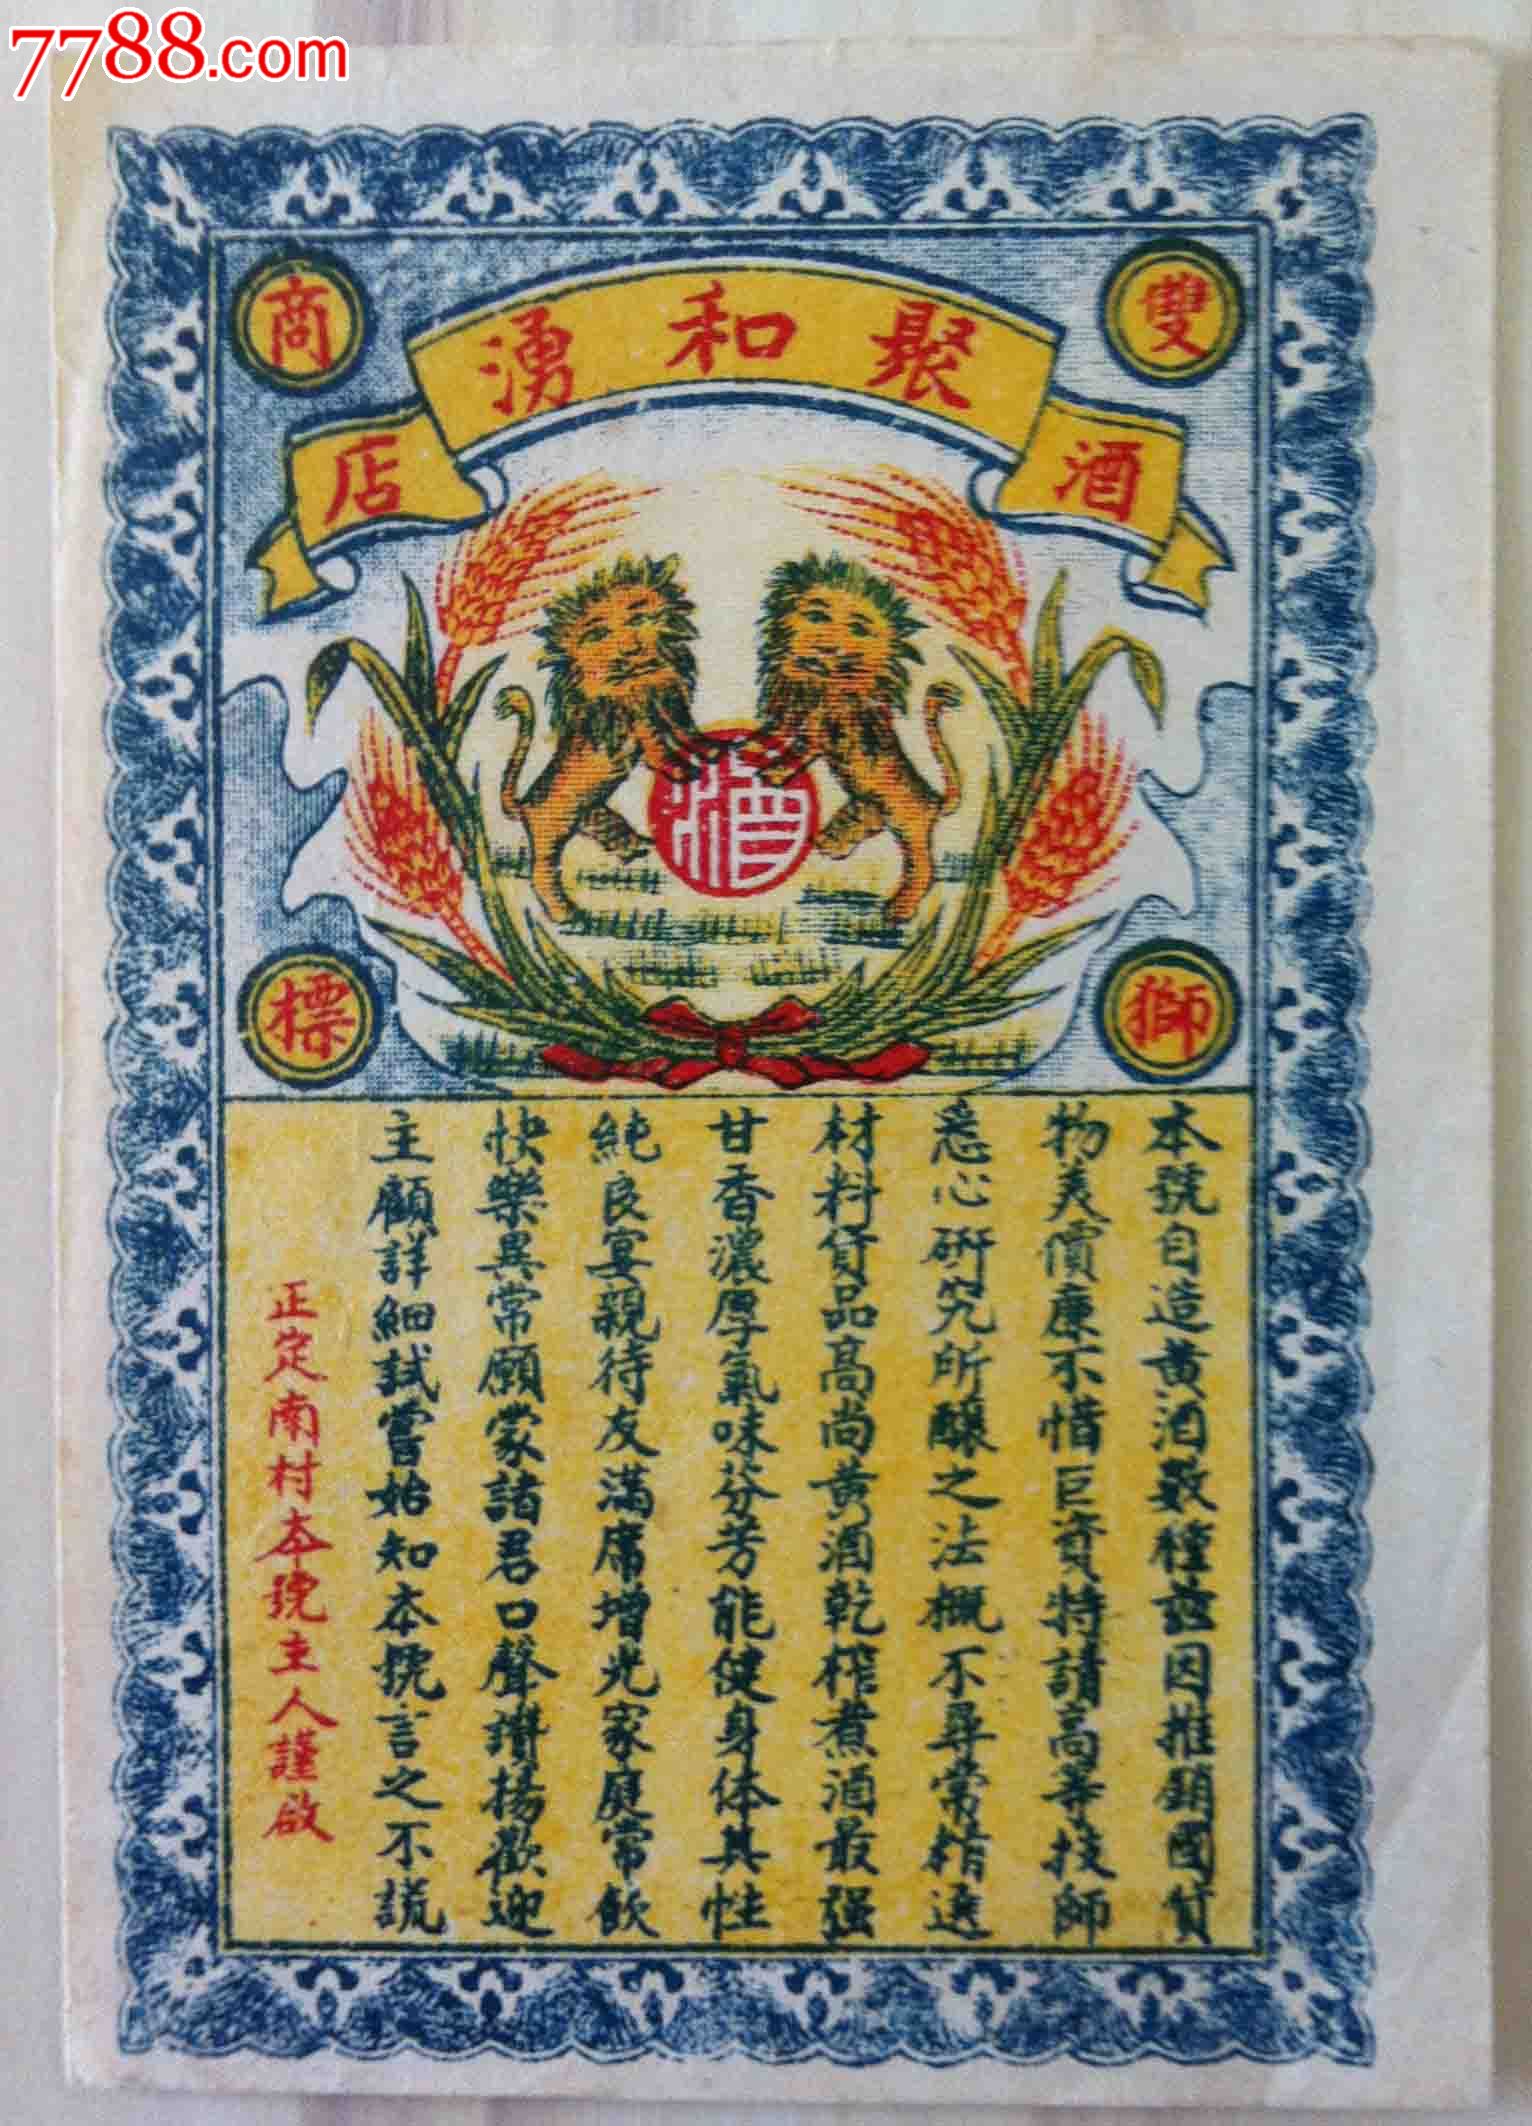 7788.com
雙獅
商標
聚和湧
酒店
酒
本號自造黄酒數種茲因推銷國貨
物美價廉不惜巨資特請高等技師
悉心研究所釀之法概不尋常精选
材料貨品高尚黄酒乾榨煮酒最强
甘香濃厚氣味芬芳能健身体其性
純良宴親待友滿席增光家庭常飲
快樂異常願蒙諸君口聲讚揚歡迎
主顧詳細試嘗始知本號言之不謊
正定南村本號主人謹啟